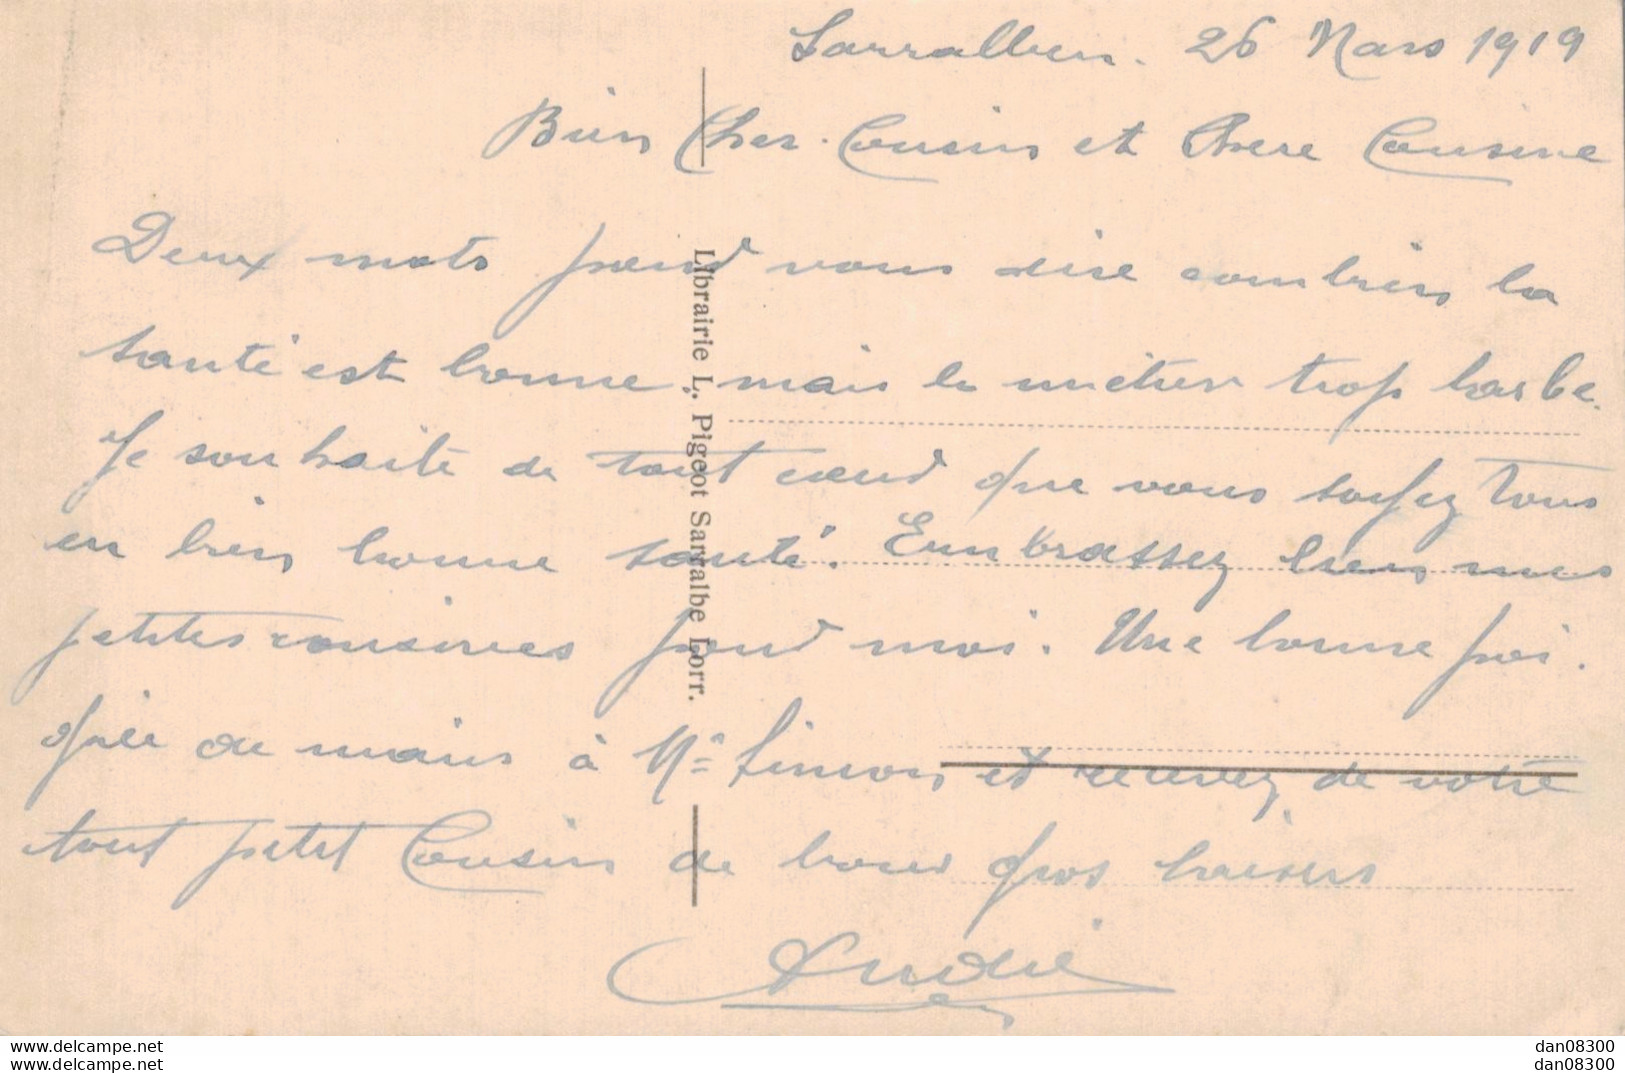 Sarralben. 26 Mars 1919
Bien Cher Cousin et Chere Cousine
Deux mots pour vous dire combien la
santé est bonne, mais le métier trop barbe.
Je souhaite de tout coeur que vous soyez tous
en bien bonne santé. Embrassez bien mes
petites cousines pour moi. Une bonne poi.
gnée de mains à Mr Simon et recevez de votre
tout petit Cousin de bons gros baisers
André
Librairie L. Pigeot Sarralbe Lorr.
www.delcampe.net
www.delcampe.net
dan08300
dan08300